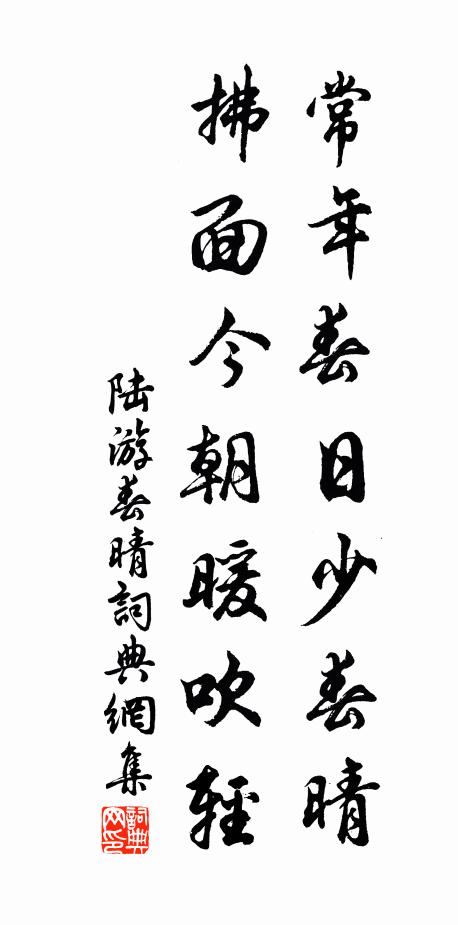 常年春日少春晴
拂面今朝暖吹輕
陆游春晴詞典網集
詞典网印